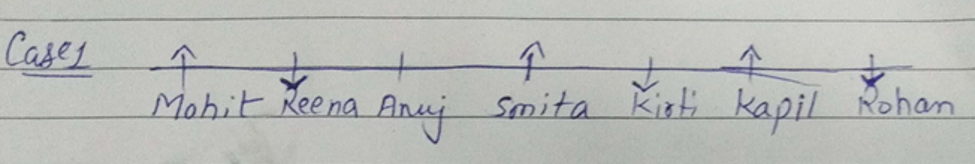 Case1
Mohit Reena Anuj Smita Kirti Kapil Rohan